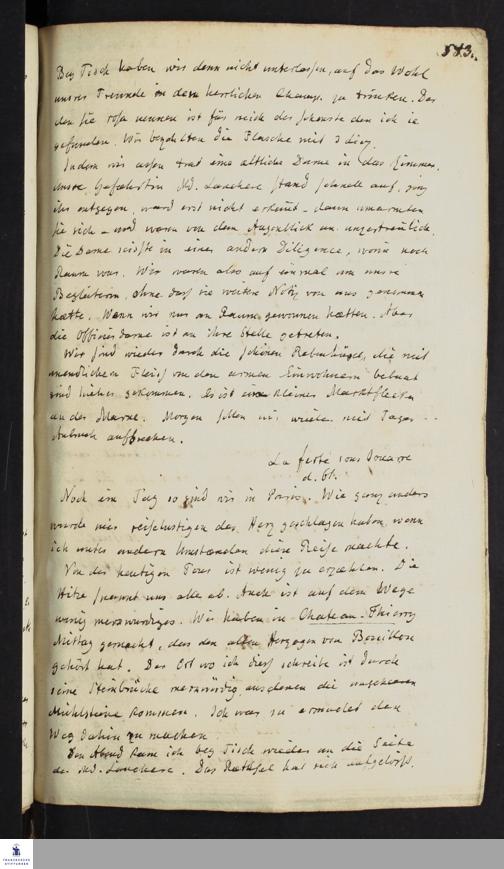 583.
Bey Tisch haben wir denn nicht unterlassen, auf das Wohl
unsrer Freunde in dem herrlichen Champ. zu trinken. Das
den sie rosa nennen ist für mich das schönste den ich je
gefunden. Wir bezahlten die Flasche mit 3
Indem wir assen trat eine ältliche Dame in das Zimmer.
Unsre Gefährtin Md. Lanchere stand schnell auf, ging
ihr entgegen, ward erst nicht erkannt – dann umarmten
sie sich – und waren von dem Augenblick an unzertrenlich.
Die Dame reisste in einer andern Diligence, worin noch
Raum war. Wir waren also auf einmal um unsre
Begleiterin, ohne dass sie weitere Notiz von uns genommen
hätte. Wenn wir nur an Raum gewonnen hätten. Aber
die Officiersdame ist an ihre Stelle getreten.
Wir sind wieder durch die schönen Rebenhügel, die mit
unendlichem Fleiss von den armen Einwohnern bebaut
sind hieher gekommen. Es ist ein kleines Marktflecken
an der Marne. Morgen sollen wir wieder mit Tages
Anbruch aufbrechen.
La ferté sous Jouarre
d. 6t.
Noch ein Tag so sind wir in Paris. Wie ganz anders
würde mir reiselustigen das Herz geschlagen haben, wenn
ich unter andern Umständen diese Reise machte.
Von der heutigen Tour ist wenig zu erzählen. Die
Hitze spannt uns alle ab. Auch ist auf dem Wege
wenig merkwürdiges. Wir haben in Chateau-Thierry
Mittag gemacht, das den alten Herzogen von Bouillon
gehört hat. Der Ort wo ich diess schreibe ist durch
seine Steinbrüche merkwürdig aus denen die
Mühlsteine kommen. Ich war zu ermüdet den
Weg dahin zu machen.
Den Abend kam ich bey Tisch wieder an die Seite
der Md. Lanchere. Das Räthsel hat sich aufgelösst.
FRANCKESCHE
STIFTUNGEN